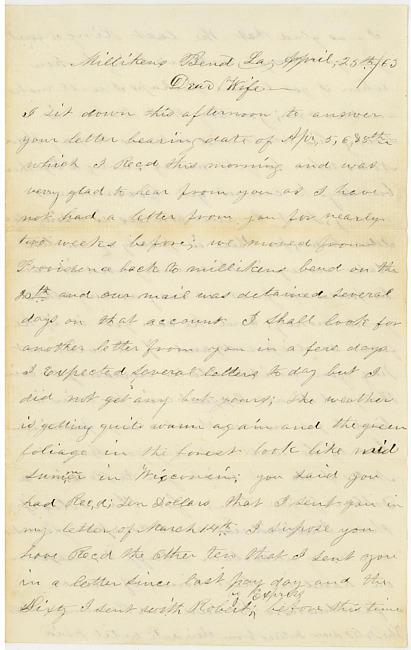 Millikens Bend La, April, 25th/63
Dear Wife
I sit down this afternoon to answer
your letter bearing date of Apr, 5, 6, & 8th
which I Recd this morning and was
very glad to hear from you as I have
not had a letter from you for nearly
two weeks before; we moved from
Providence back to millikens bend on the
and our mail was detained several
days on that account I shall look for
another letter from you in a few days
I Expected several letters to day but I
did not get any but yours; the weather
is getting quite warm again and the green
foliage in the forest look like mid
summer in Wisconsin; you said you
had Recd; Ten Dollars that I sent you in
my letter of March 14th I supose you
have Recd the other ten that I sent you
in a letter since last pay day and the
Sixty I sent with Robert; by Express before this time